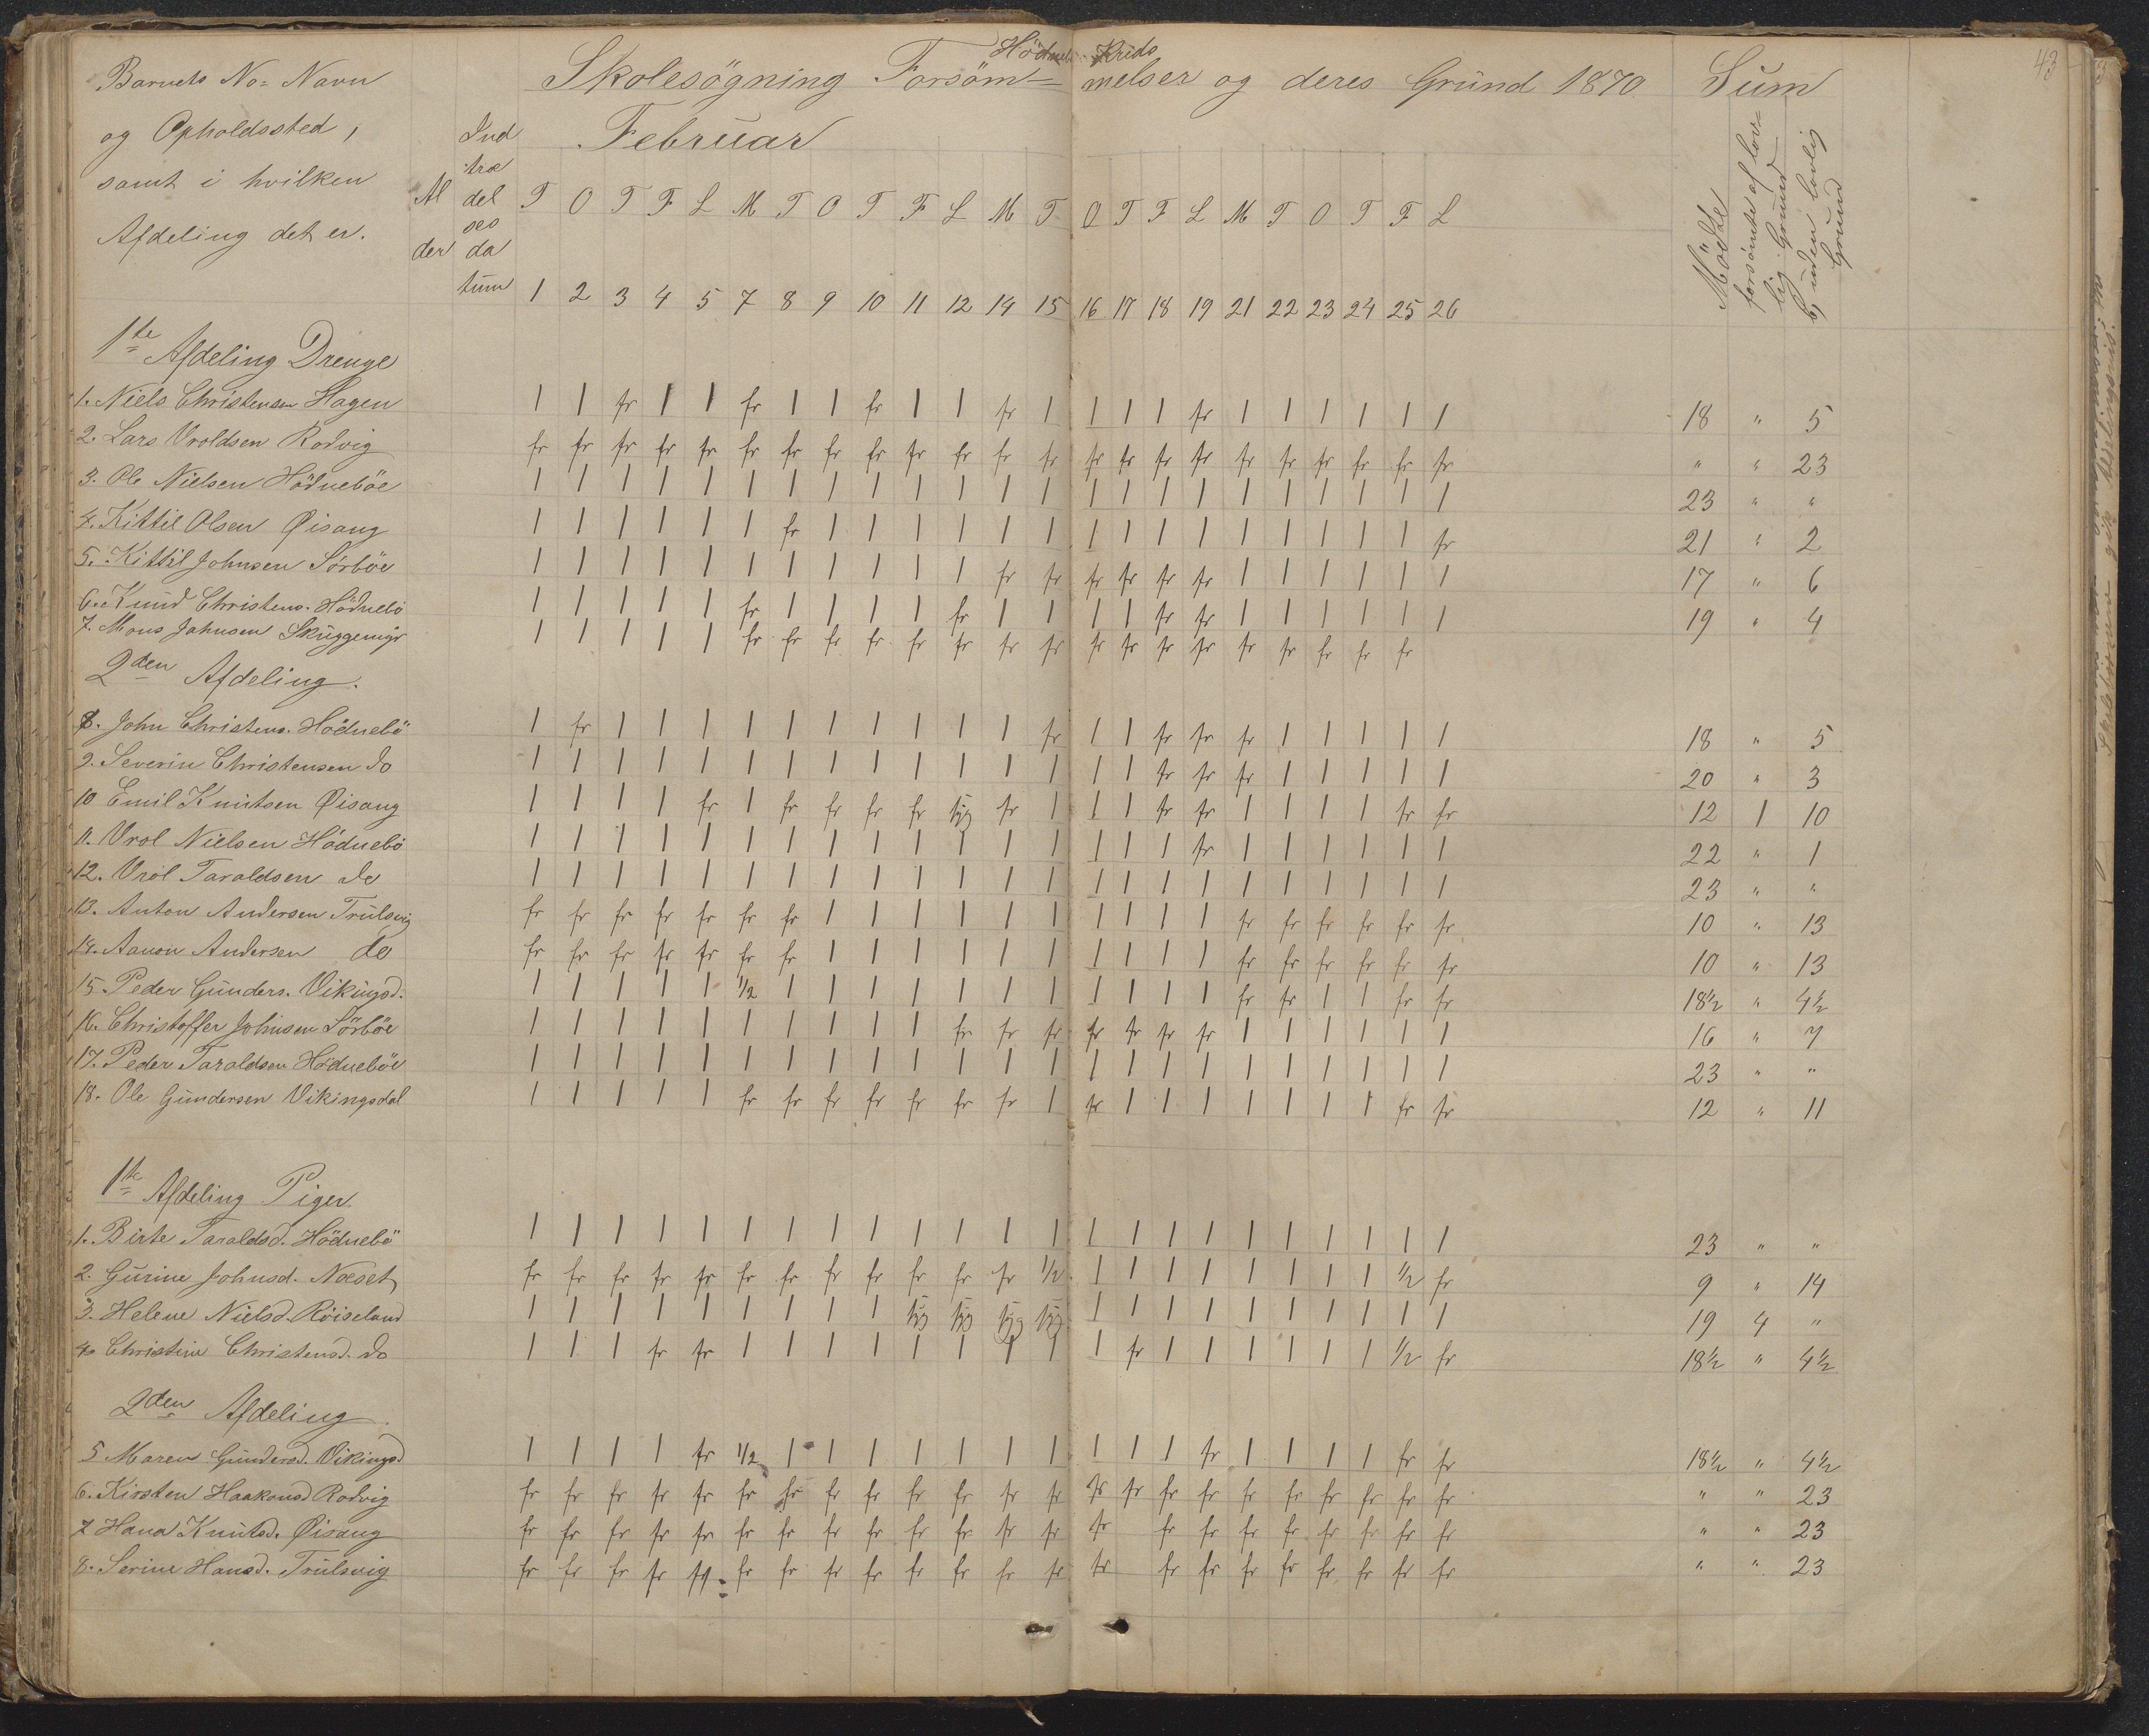 Hödnebø Kreds
43
Barnets No= Navn
og Opholdssted,
samt i hvilken
Afdeling det er.
Al
der
Ind
træ
del
ses
da
tum
Skolesøgning Forsöm= melser og deres Grund 1870
Februar
Sum
Mødte
forsömte af lov=
lig Grund
b, uden lovlig
Grund
T O T F L M T O T F L M T O T F L M T O T F L
1 2 3 4 5 7 8 9 10 11 12 14 15 16 17 18 19 21 22 23 24 25 26
1ste Afdeling Drenge
1. Niels Christensen Hagen 1 1 fr 1 1 fr 1 1 fr 1 1 fr 1 1 1 1 fr 1 1 1 1 1 1 18 " 5
2. Lars Vroldsen Rodvig fr fr fr fr fr fr fr fr fr fr fr fr fr fr fr fr fr fr fr fr fr fr fr " " 23
3. Ole Nielsen Hödneböe 1 1 1 1 1 1 1 1 1 1 1 1 1 1 1 1 1 1 1 1 1 1 1 23 " "
4. Kittil Olsen Øisang 1 1 1 1 1 1 fr 1 1 1 1 1 1 1 1 1 1 1 1 1 1 1 fr 21 " 2
5. Kittil Johnsen Sörböe 1 1 1 1 1 1 1 1 1 1 1 fr fr fr fr fr fr 1 1 1 1 1 1 17 " 6
6. Knud Christens. Hödnebö 1 1 1 1 1 fr 1 1 1 1 fr 1 1 1 1 fr fr 1 1 1 1 1 1 19 " 4
7. Mons Johnsen Skuggemÿr 1 1 1 1 1 fr fr fr fr fr fr fr fr fr fr fr fr fr fr fr fr fr
2den Afdeling.
8. John Christens. Hödnebö 1 fr 1 1 1 1 1 1 1 1 1 1 fr 1 1 fr fr fr 1 1 1 1 1 18 " 5
9. Severin Christensen do 1 1 1 1 1 1 1 1 1 1 1 1 1 1 1 fr fr fr 1 1 1 1 1 20 " 3
10 Emil Knutsen Øisang 1 1 1 1 fr 1 fr fr fr fr syg fr 1 1 1 fr fr 1 1 1 1 fr fr 12 1 10
11. Vrol Nielsen Hödnebö 1 1 1 1 1 1 1 1 1 1 1 1 1 1 1 1 fr 1 1 1 1 1 1 22 " 1
12. Vrol Taraldsen do 1 1 1 1 1 1 1 1 1 1 1 1 1 1 1 1 1 1 1 1 1 1 1 23 " "
13. Anton Andersen Trulsvig fr fr fr fr fr fr fr 1 1 1 1 1 1 1 1 1 1 fr fr fr fr fr fr 10 " 13
14. Aanon Andersen do fr fr fr fr fr fr fr 1 1 1 1 1 1 1 1 1 1 fr fr fr fr fr fr 10 " 13
15. Peder Gunders. Vikingsd. 1 1 1 1 1 1/2 1 1 1 1 1 1 1 1 1 1 1 fr fr 1 1 fr fr 18½ " 4½
16. Christoffer Johnsen Sörböe 1 1 1 1 1 1 1 1 1 1 fr fr fr fr fr fr fr 1 1 1 1 1 1 16 " 7
17. Peder Taraldsen Hödneböe 1 1 1 1 1 1 1 1 1 1 1 1 1 1 1 1 1 1 1 1 1 1 1 23 " "
18. Ole Gundersen Vikingsdal 1 1 1 1 1 fr fr fr fr fr fr fr 1 fr 1 1 1 1 1 1 1 fr fr 12 " 11
1ste Afdeling Piger
1. Birte Taraldsd. Hödnebö 1 1 1 1 1 1 1 1 1 1 1 1 1 1 1 1 1 1 1 1 1 1 1 23 " "
2. Gurine Johnsd. Næset fr fr fr fr fr fr fr fr fr fr fr fr 1/2 1 1 1 1 1 1 1 1 1/2 fr 9 " 14
3. Helene Nielsd. Röiseland 1 1 1 1 1 1 1 1 1 syg syg syg syg 1 1 1 1 1 1 1 1 1 1 19 4 "
4. Christine Christensd. do 1 1 1 fr fr 1 1 1 1 1 1 1 1 1 fr 1 1 1 1 1 1 1/2 fr 18½ " 4½
2den Afdeling
5 Maren Gundersd. Vikingsd 1 1 1 1 fr 1/2 1 1 1 1 1 1 1 1 1 1 fr 1 1 1 1 fr fr 18½ " 4½
6. Kirsten Haakonsd Rodvig fr fr fr fr fr fr fr fr fr fr fr fr fr fr fr fr fr fr fr fr fr fr fr " " 23
7 Hana Knutsd. Øisang fr fr fr fr fr fr fr fr fr fr fr fr fr fr fr fr fr fr fr fr fr fr " " 23
8. Serine Hansd. Trulsvig fr fr fr fr fr fr fr fr fr fr fr fr fr fr fr fr fr fr fr fr fr fr " " 23